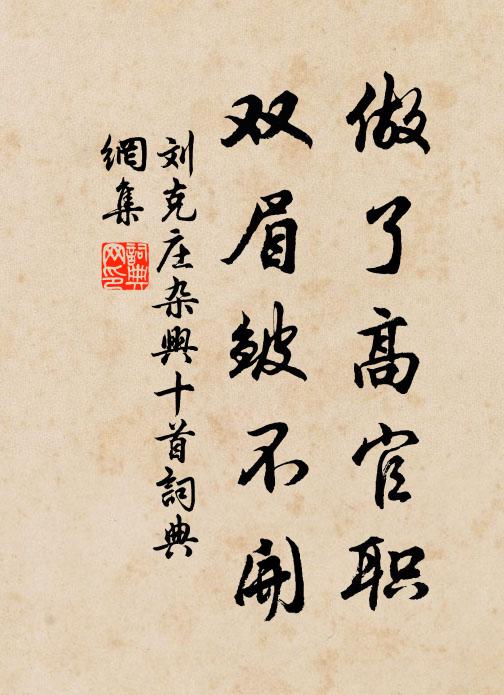 做了高官职
双眉皱不开
刘克庄杂興十首詞典
網集
詞典
网印